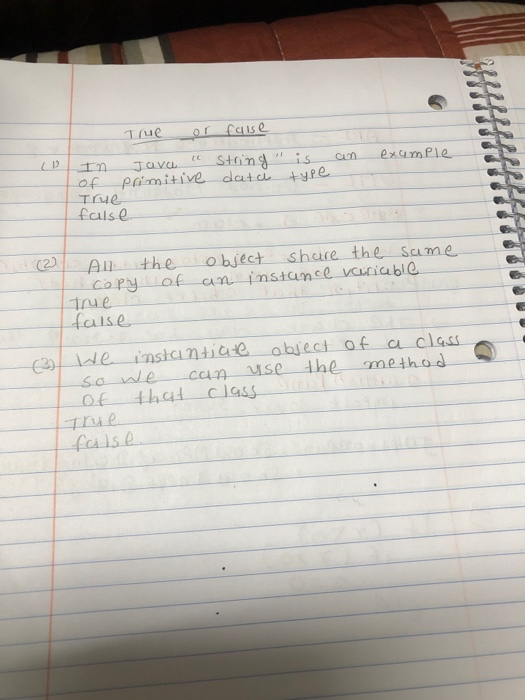 True or false
(1) In Java "string" is an example
of primitive data type
True
false
(2) All the object share the same
copy of an instance variable
True
false
(3) We instantiate object of a class
so we can use the method
of that class
True
false